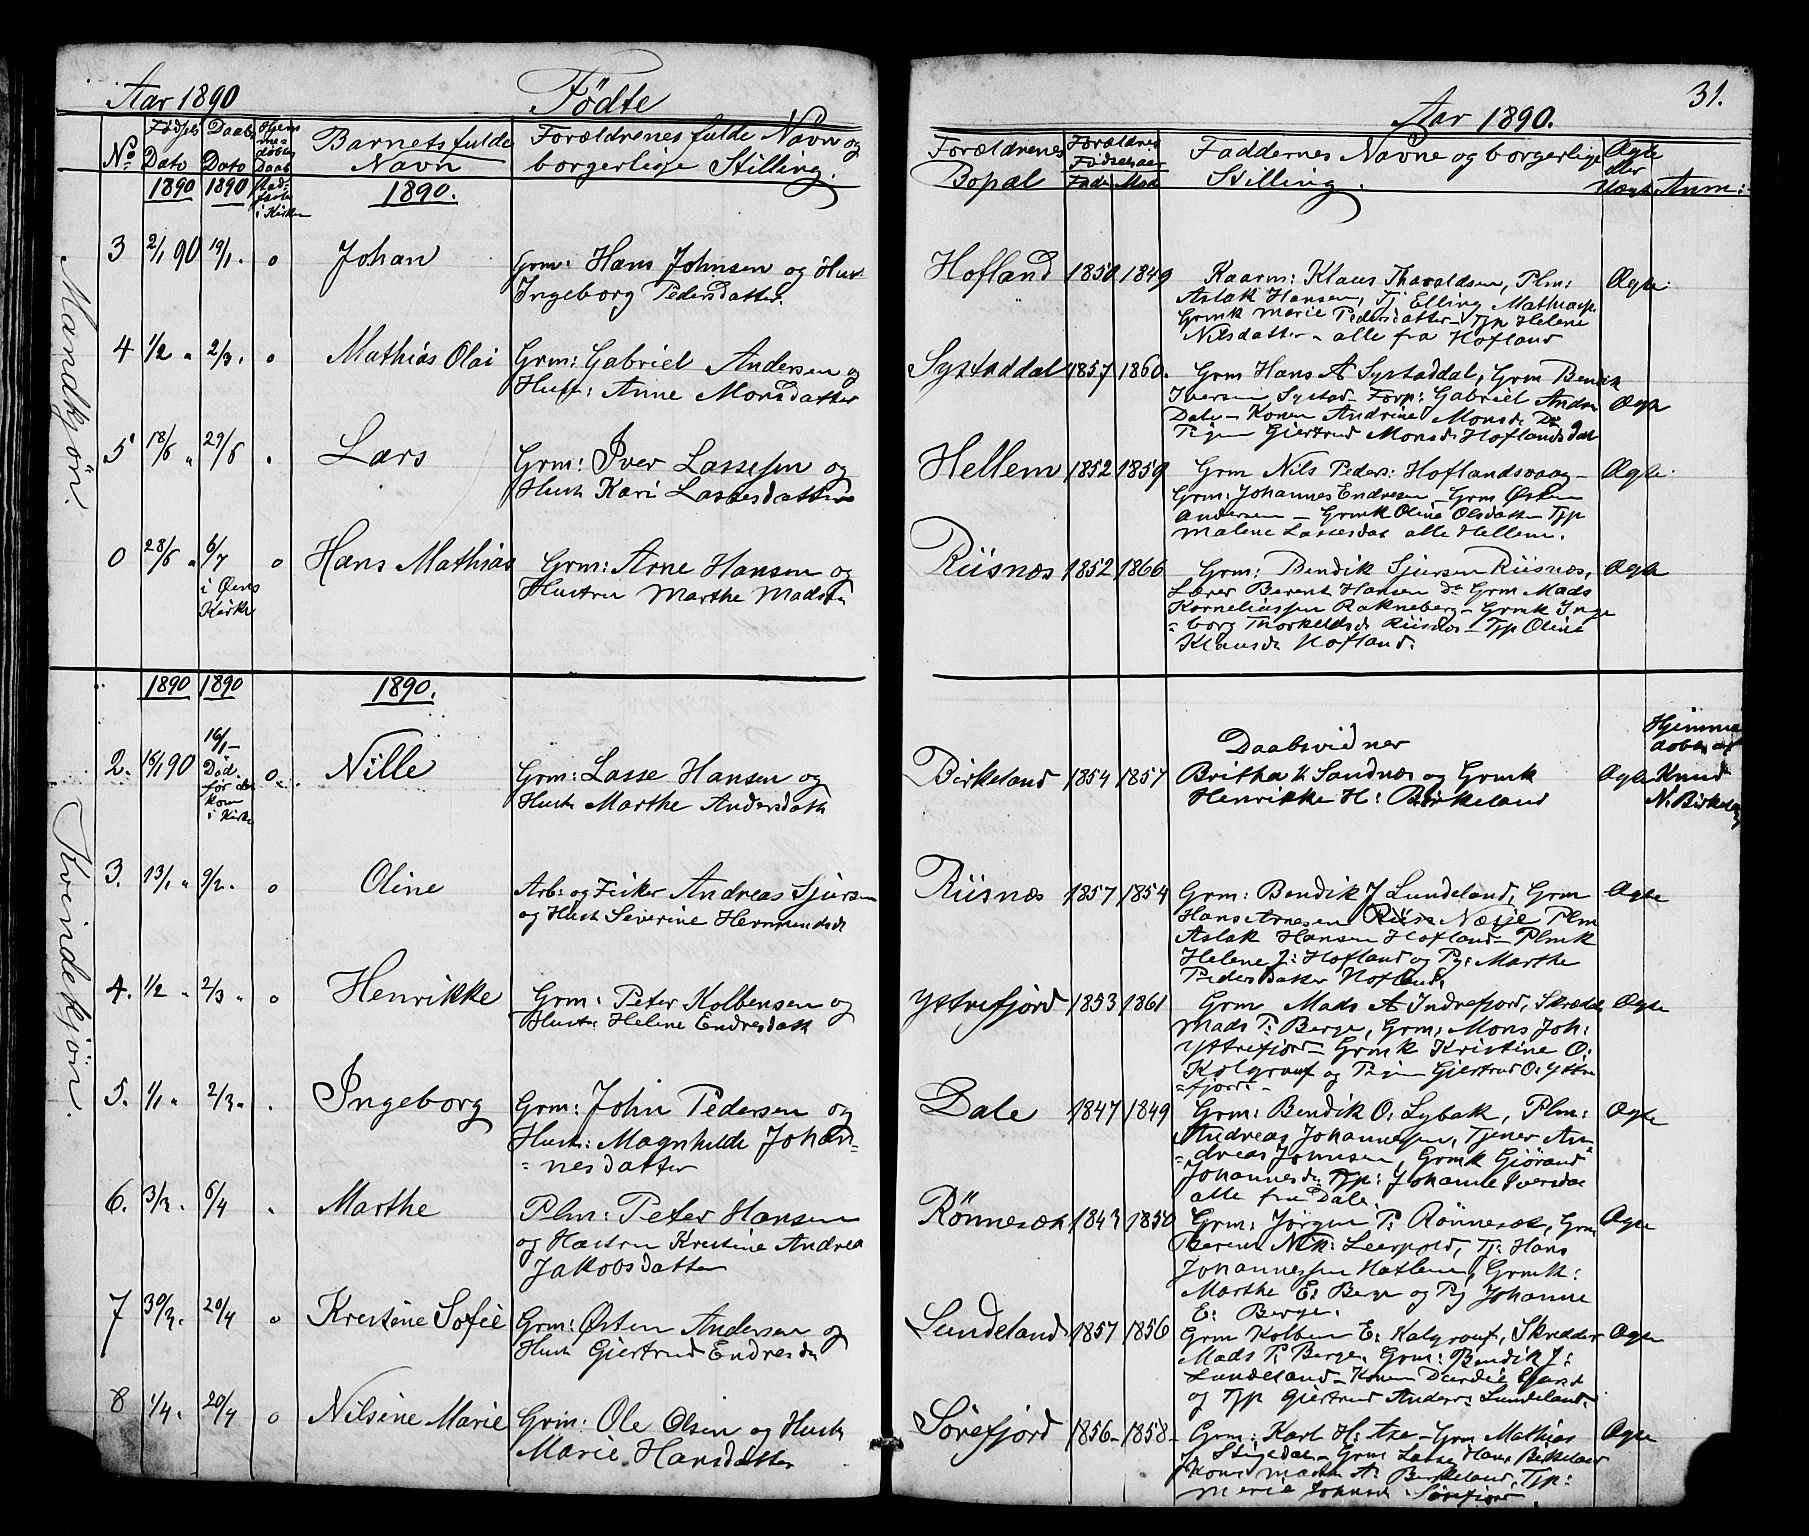 Aar 1890
Födte
No
Födsels Dato
Daabs Dato
Hjemmedöbte Daab stadfestet i Kirken
Barnets fulde Navn
Forældrenes fulde Navn og borgerlige Stilling.
1890 1890 1890.
Mandkjön.
3 2/1 90 19/1. o Johan
Grm: Hans Johnsen og Hust
Ingeborg Pedersdatter.
4 1/2 " 2/3. o Mathias Olai
Grm: Gabriel Andersen og
Hust: Anne Monsdatter
5 18/6 " 29/6 . Lars
Grm: Iver Lassesen og
Hust Kari Lassesdatter
0 28/6 " 6/7 i Öens Kirke o Hans Mathias
Grm: Arne Hansen og
Hustru Marthe Madsdr
1890 1890 1890.
Kvindekjön.
2. 16/1 90 16/1 – Död. før den kom i Kirke o. Nille
Grm: Lasse Hansen og
Hust Marthe Andersdatt
3. 13/1 " 9/2. o Oline
Arb: og Fisker Andreas Sjursen
og Hust Severine Hermundsdr
4. 1/2 " 2/3 " o Henrikke
Grm: Peter Kolbensen og
Hust: Helene Endresdatt
5. 1/1 " 2/3 " . Ingeborg
Grm: John Pedersen og
Hust: Magnhilde Johan-
=nesdatter
6. 3/3. 6/4 " Marthe
Plm: Peter Hansen
og Hustru Kristine Andrea
Jakobsdatter
7 30/3. 20/4 o Kristine Sofie
Grm: Østen Andersen og
Hust Gjertrud Endresdr
8 1/4. 20/4 o Nilsine Marie
Grm: Ole Olsen og Hust
Marie Hansdatter
31.
Aar 1890.
Forældrenes Bopæl
Forældres Födselsaar
Fader Mod
Faddernes Navne og borgerlige
Stilling.
Ægte eller Uægte
Anm:
Hofland 1850 1849
Kaarm: Klaus Tharaldsen, Plm:
Aslak Hansen, Tj Elling Mathiasn
Grmk Marie Pedersdatter – Tjp Helene
Nilsdatter – alle fra Hofland
Ægte.
Systaddal 1857 1860.
Grm Hans A Systaddal, Grm Bendik
Iversen Systad – Forp: Gabriel Andr
Dale – Konen Andrine Monsdr Do
Pigen Giertrud Monsdr Hoflandsdal
Ægte
Hellem 1852 1859
Grm Nils Peders: Hoflandsvaag –
Grm: Johannes Endresen – Grm Østen
Andersen – Grmk Oline Olsdatter Tjp
Malene Lassesdat alle Hellem.
Ægte.
Riisnæs 1852 1866
Grm: Bendik Sjursen Riisnæs,
Lærer Berent Hansen Do Grm Mads
Korneliussen Rakneberg – Grmk Inge
=borg Thorkeldsdr Riisnæs – Tjp Oline
Klausdr Hofland.
Ægte
Birkeland 1854 1857
Daabsvidner
Britha K Sandnæs og Grmk
Henrikke H: Birkeland
Ægte
Hjemme
døbt af
Knud
N. Birkeland
Riisnæs 1857 1854
Grm: Bendik J Lundeland, Grm
Hans Arnesen Riis Næsje Plm
Aslak Hansen Hofland – Plmk
Helene J: Hofland og Pg: Marthe
Pedersdatter Hofland.
Ægte
Yttrefjord 1853 1861
Grm Mads A Indrefjord, Skrædder
Mads P: Berge, Grm: Mons Joh:
Yttrefjord – Grmk Kristine O:
Kolgrouf og Pigen Gjertrud O: Yttre
=fjord –
Ægte
Dale 1847 1849
Grm: Bendik O: Lybak, Plm:
Andreas Johannessen, Tjener An=
=dreas Johnsen, Grmk Gjörand
Johannesdr Tjp: Johanne Iversdr
alle fra Dale.
Ægte
Rönnesæt 1843 1850
Grm: Jörgen P: Rönnesæt, Grm
Berent Nik: Leerpold, Tj: Hans
Johannessen Hatlem, Grmk:
Marthe E: Berge og Pg Johanne
E: Berge.
Ægte
Lundeland 1857 1856
Grm Kolben E: Kolgrouf, Skredder
Mads P: Berge, Grm: Bendik J:
Lundeland – Konen
og Tjp Gjertrud Anders: Lundeland.
Ægte
Sörefjord 1856 – 1858 –
Grm: Karl H: Axe – Grm Mathias
Stigedal – Grm Lasse Hans Birkeland
Kone A: Berkeland, Tjp:
Merie Johnsdr Sörefjord.
Ægte